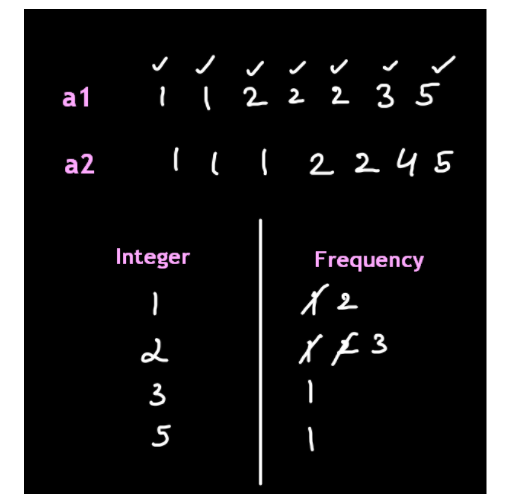 a1 1 1 2 2 2 3 5
a2 1 1 1 2 2 4 5
Integer Frequency
1 1 2
2 1 2 3
3 1
5 1